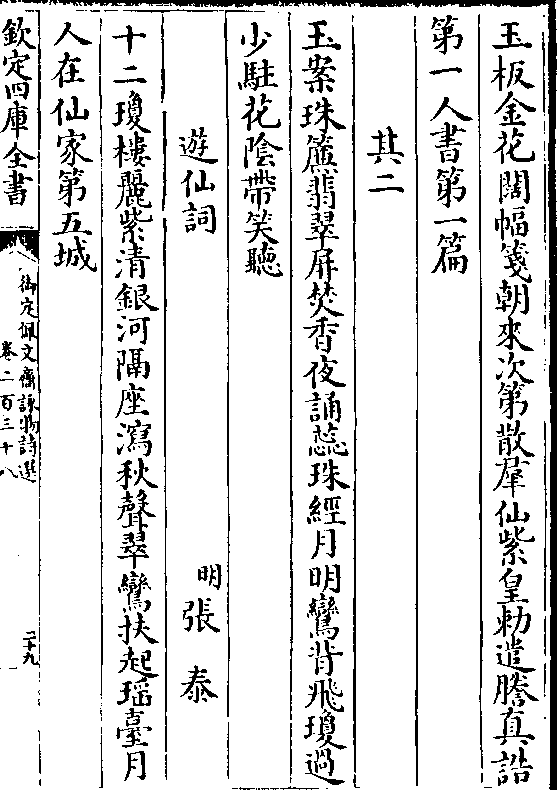 玉板金花闊幅箋朝來次第散羣仙紫皇勅遣謄真誥
第一人書第一篇
其二
玉案珠簾翡翠屏焚香夜誦蕊珠經月明鸞背飛瓊過
少駐花陰帶笑聽
遊仙詞
明張泰
十二瓊樓麗紫清銀河隔座瀉秋聲翠鸞扶起瑶臺月
人在仙家第五城
欽定四庫全書
御定佩文齋詠物詩選
卷二百三十八
二十九